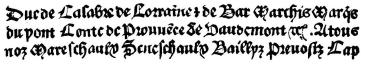 Duc de Calabre de Lorraine ⁊ de Bar Marchis Marq̃s
du pont Conte de Prouuẽce De Vaudemont ⁊c̃. A tous
noz Mareschaulx Seneschaulx Baillyz Preuostz Cap